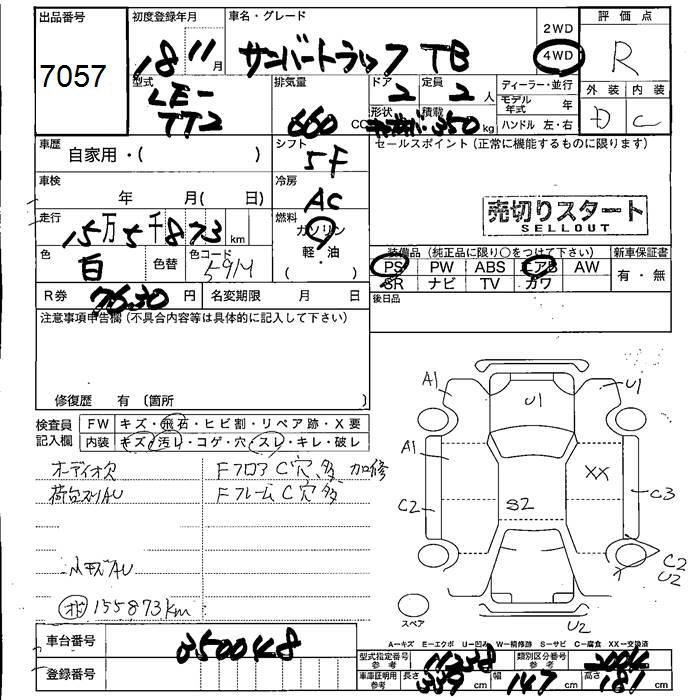 出品番号
7057
初度登録年月
18 11月
車名・グレード
サンバートラック TB
2WD
4WD
評価点
R
外装 内装
D C
型式
LE-
TT2
排気量
660 CC
ドア
2
定員
2人
形状
積載
350 kg
ディーラー・並行
モデル年式 年
ハンドル 左・右
車歴
自家用・( )
シフト
5F
セールスポイント(正常に機能するものに限ります)
車検
年 月( 日)
冷房
AC
売切りスタート
SELLOUT
走行
15万5千873km
燃料
ガソリン
軽・油
( )
色
白
色替
色コード
591M
装備品(純正品に限り○をつけて下さい)
新車保証書
PS PW ABS エアB AW
SR ナビ TV カワ
有・無
R券
7630円
名変期限 月 日
後日品
注意事項申告欄(不具合内容等は具体的に記入して下さい)
修復歴 有〔箇所 〕
検査員
記入欄
FW キズ・飛石・ヒビ割・リペア跡・X要
内装 キズ・汚レ・コゲ・穴・スレ・キレ・破レ
オーディオ欠
Fフロア C穴、多 加修
荷台スリAU
Fフレーム C穴多
メモズAU
オド 155873km
A1
U1
U1
A1
XX
C2
S2
C3
C2
U2
U2
スペア
A-キズ E-エクボ U-凹ム W-補修跡 S-サビ C-腐食 XX-交換済
車台番号
350048
登録番号
型式指定番号
参考
11258
類別区分番号
参考
2004
車庫証明用
参考
長さ
339 cm
幅
147 cm
高さ
181 cm